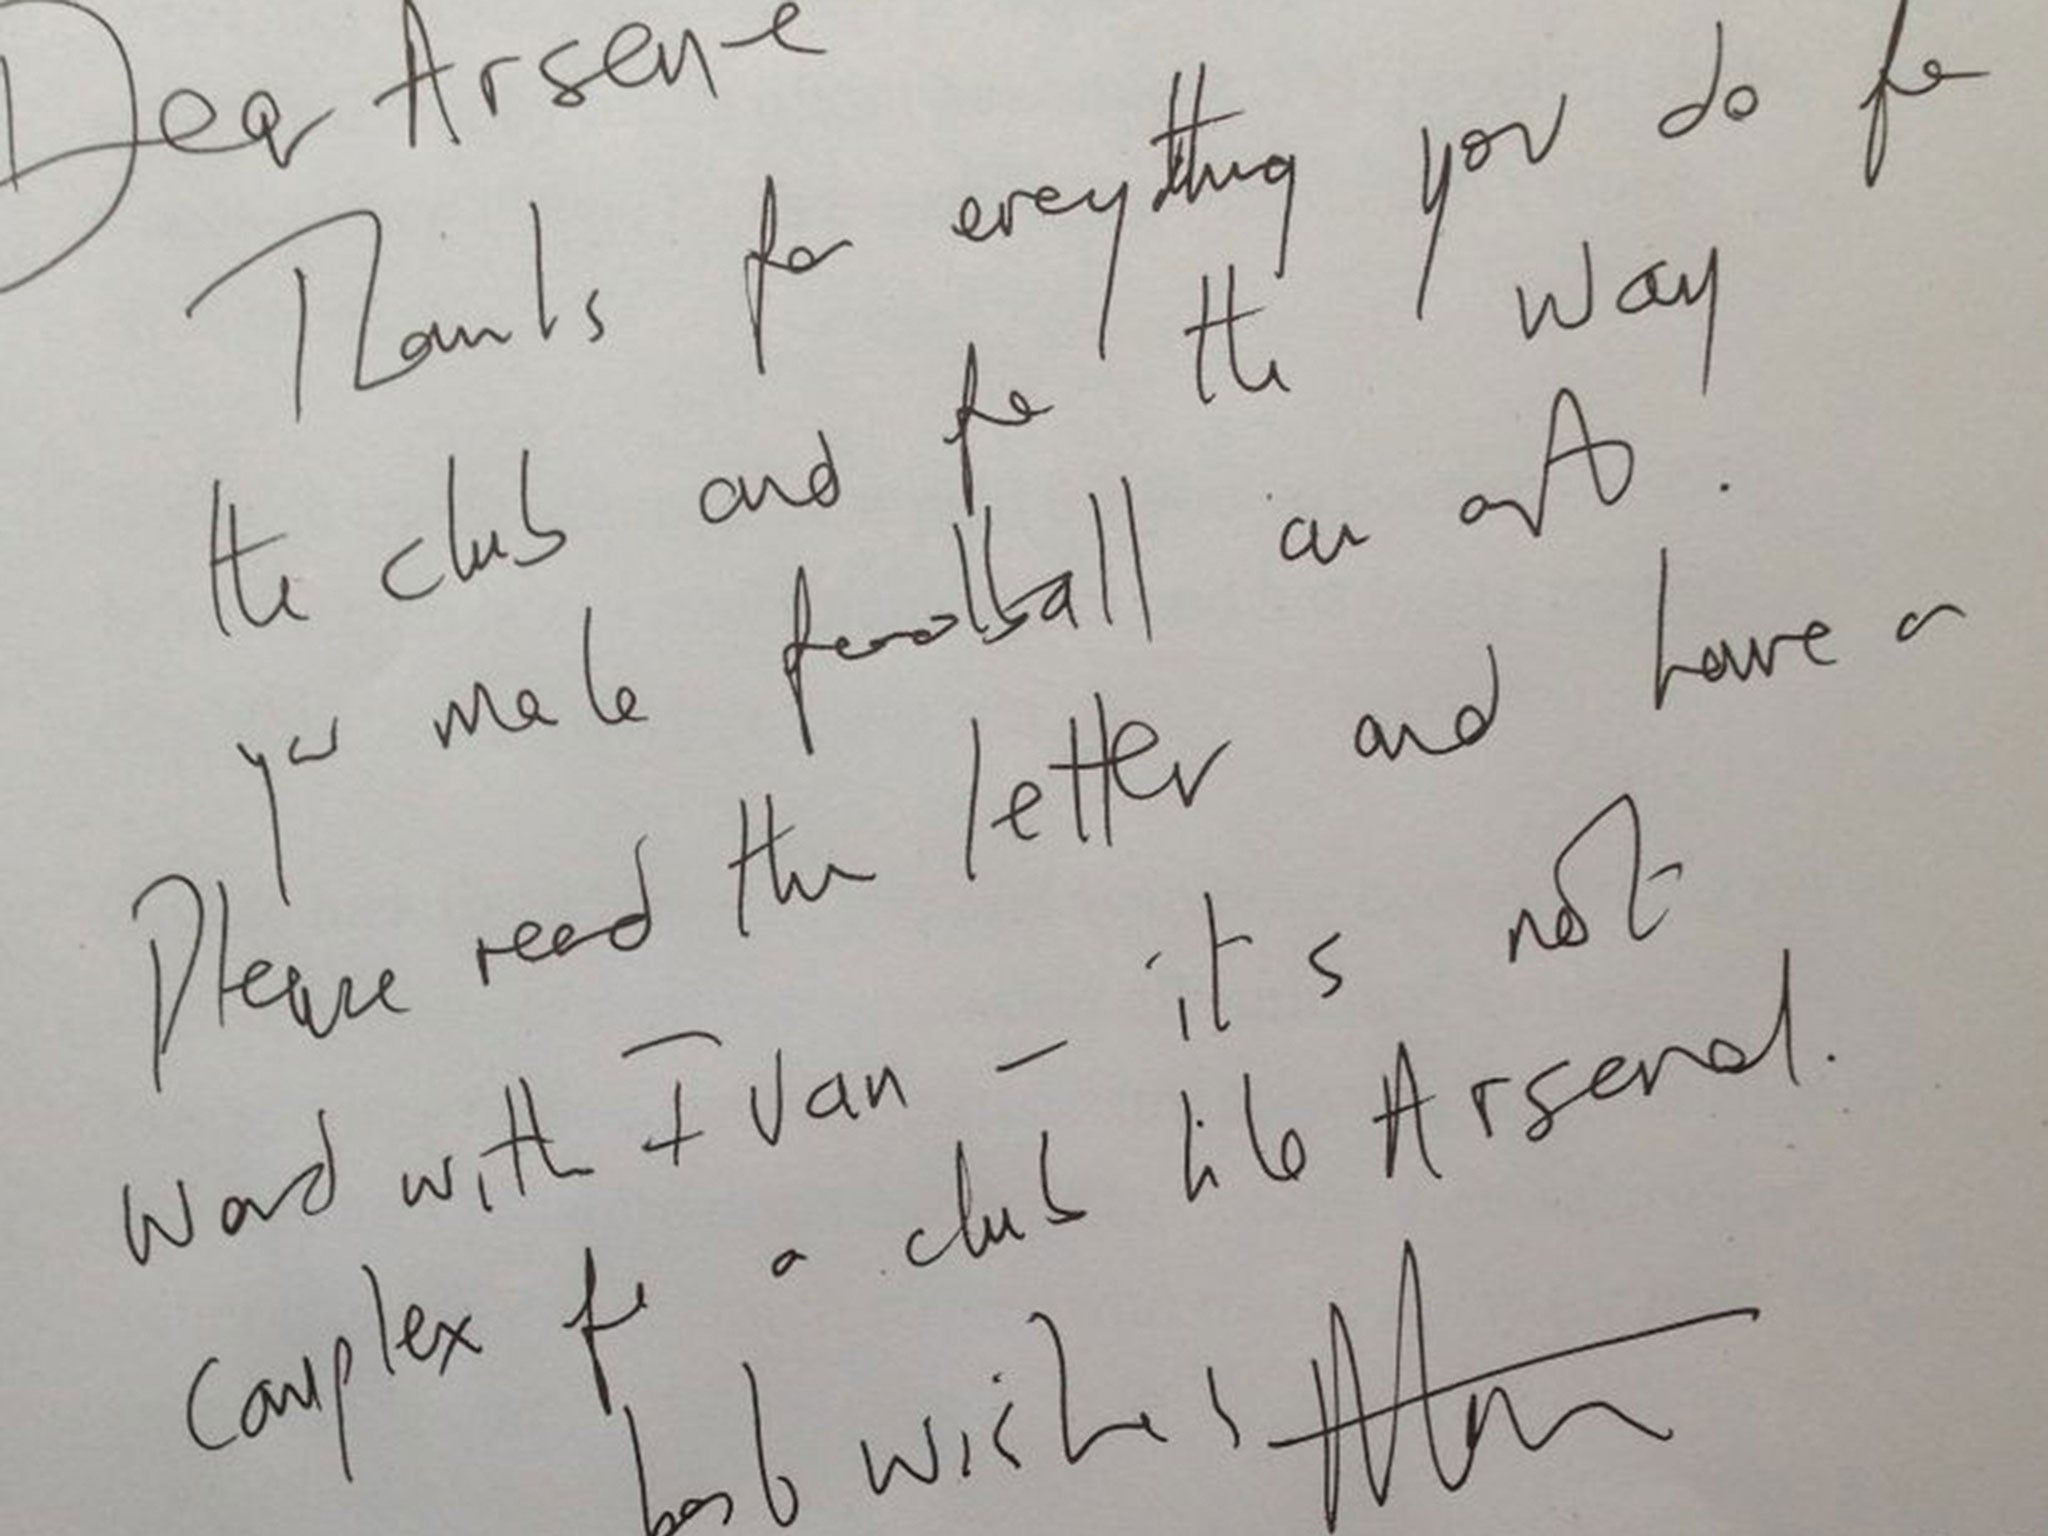 Dear Arsene
Thanks for everything you do for
the club and for the way
you make football an art.
Please read the letter and have a
word with Ivan - it's not
complex for a club like Arsenal.
best wishes